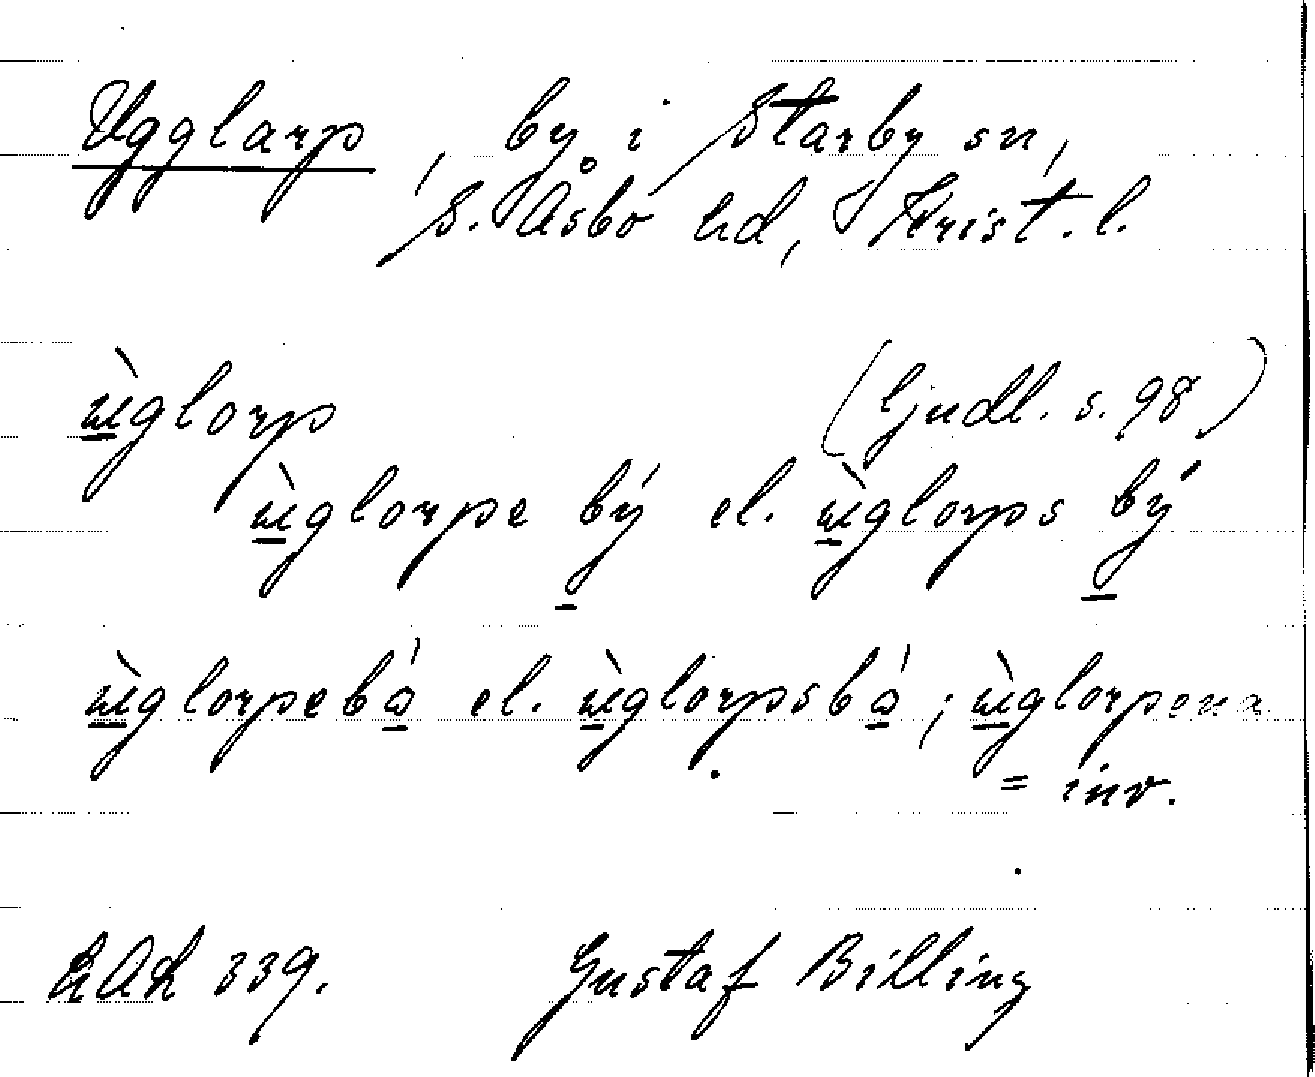 Ugglarp, by i Starby sn,
S. Åsbo hd, Krist. l.
ùglorp (Ljudl. s. 98)
ùglorpe bý el. ùglorps bý
ùglorpebó el. ùglorpsbó; ùglorpena
= inv.
LAL 339. Gustaf Billing